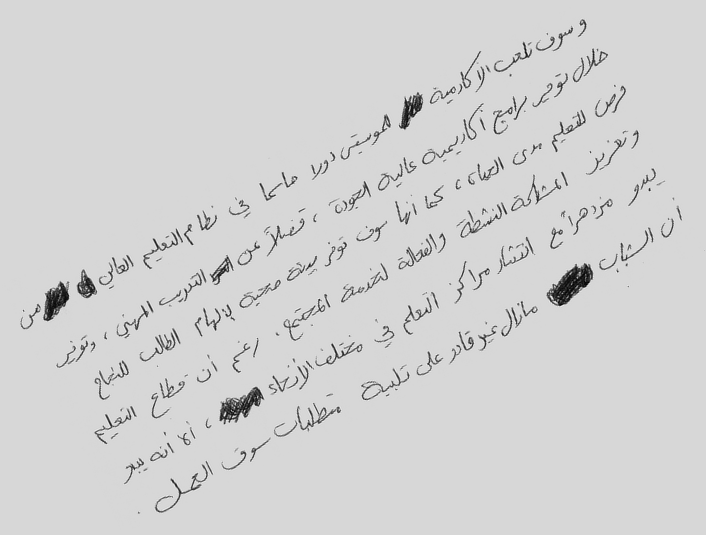 و سوف تلعب الأكاديمية الموسيقى دورا حاسما في نظام التعليم العالي من
خلال توفير برامج أكاديمية عالية الجودة ، فضلاً عن التدريب المهني ، وتوفير
فرص للتعليم مدى الحياة ، كما أنها سوف توفر بيئة صحية لإلهام الطالب للنجاح
وتعزيز المشاركة النشطة والفعالة لخدمة المجتمع . رغم أن قطاع التعليم
يبدو مزدهراً مع انتشار مراكز التعلم في مختلف الأنحاء ، ألا أنه يبدو
أن الشباب مازال غير قادر على تلبية متطلبات سوق العمل .